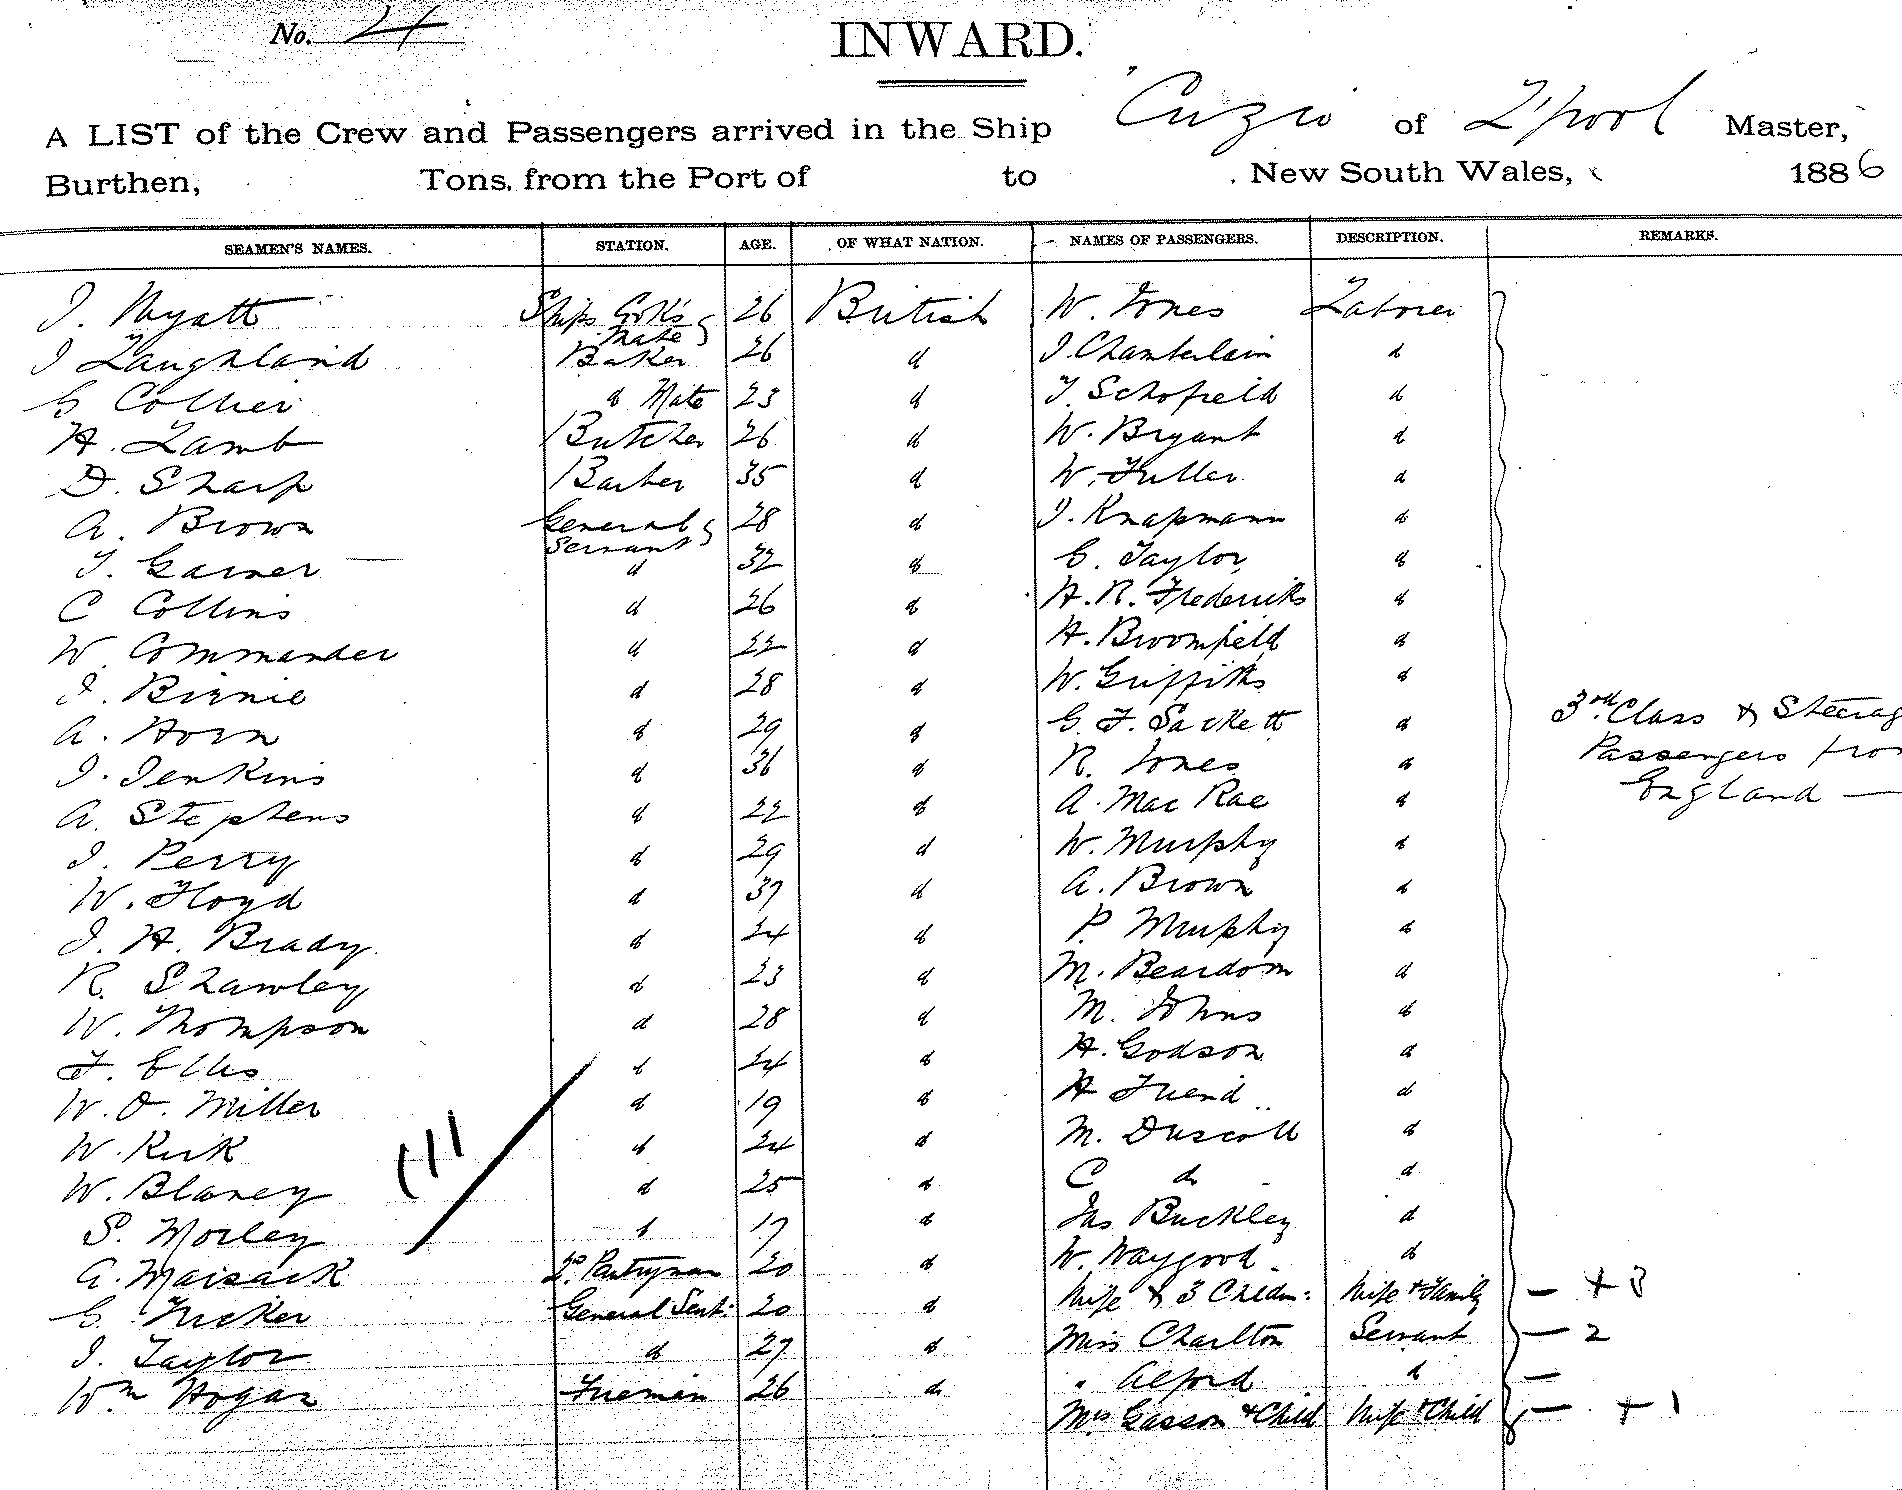 No. 4
INWARD.
A LIST of the Crew and Passengers arrived in the Ship Cuzco of L'pool Master,
Burthen, Tons, from the Port of to New South Wales, 1886
SEAMEN'S NAMES. STATION. AGE. OF WHAT NATION. NAMES OF PASSENGERS. DESCRIPTION. REMARKS.
J. Wyatt Ships Cook's Mate 26 British W. Jones Laborer
J Laughland Baker 26 d J. Chamberlain d
G Collier d Mate 23 d T. Schofield d
H. Lamb Butcher 26 d W. Bryant d
D. Sharp Barber 35 d W. Fuller d
A. Brown General Servant 28 d J. Knapmann d
T. Garner d 32 d C. Taylor d
C Collins d 26 d H. R. Fredericks d
W. Commander d 22 d H. Broomfield d
J. Birnie d 28 d W. Griffiths d
A. Horn d 29 d G. F. Sackett d 3rd Class & Steerag
J. Jenkins d 36 d R. Jones d Passengers fro
A. Stephens d 22 d A. Mac Rae d England —
J. Perry d 29 d W. Murphy d
W. Floyd d 37 d A. Brown d
J. H. Brady d 24 d P. Murphy d
R. Shawley d 23 d M. Beardom d
W. Thompson d 28 d M. Johns d
F. Ellis d 24 d H. Godson d
W. O. Miller d 19 d H Friend d
W. Kirk d 24 d M. Driscoll d
W. Blaney d 25 d C d d
S. Morley d 17 d Jas Buckley d
A. Maisack 2d. Pantryman 20 d W. Waygood d
G. Tucker General Servt. 20 d Wife & 3 Childn: Wife & Family — + 3
J. Taylor d 27 d Miss Charlton Servant — 2
Wm Hogan Fireman 26 d " Alford d —
Mrs Gasson & Child Wife & Child — + 1